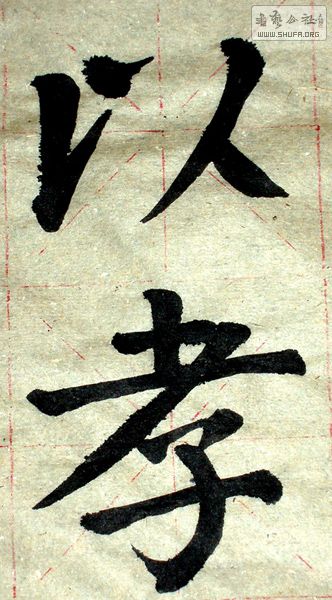 书艺公社
WWW.SHUFA.ORG
以
孝